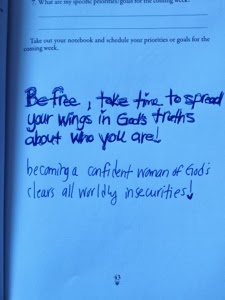 7. What are my specific priorities/goals for the coming week?
Take out your notebook and schedule your priorities or goals for the
coming week.
Be free, take time to spread
your wings in God's truths
about who you are!
becoming a confident woman of God's
clears all worldly insecurities!